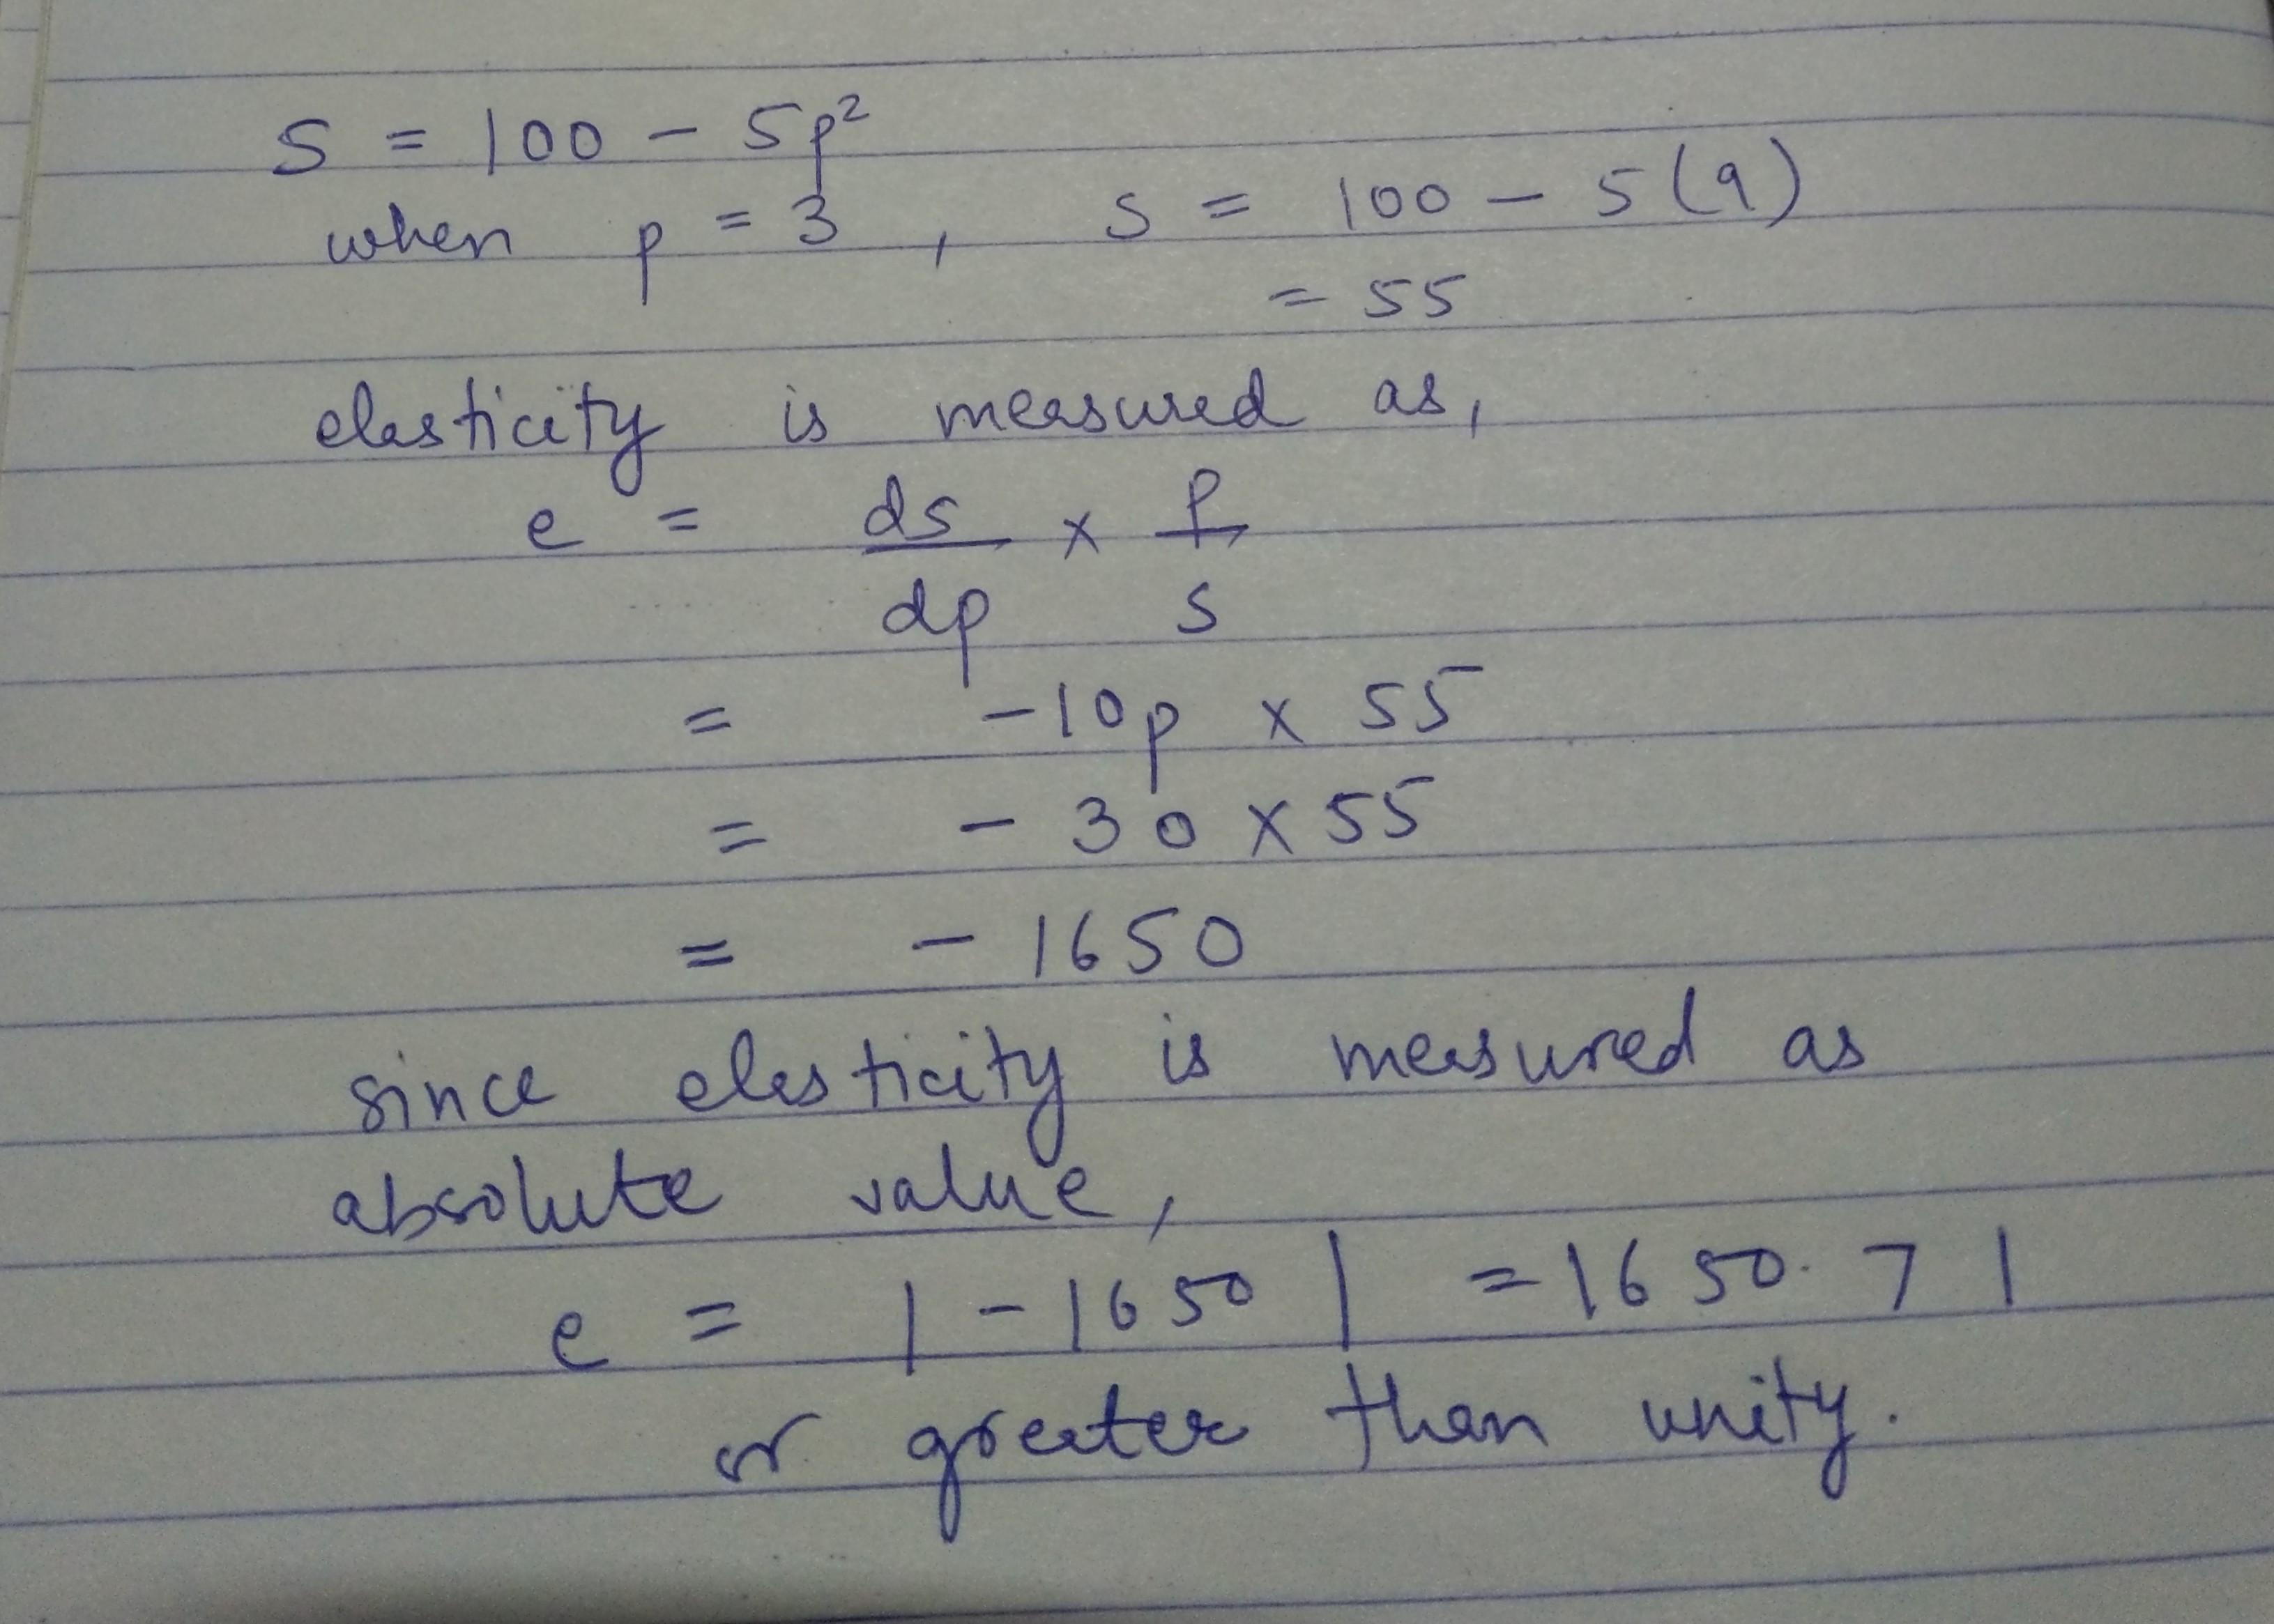 S = 100 - 5p²
when p = 3, s = 100 - 5(9)
= 55
elasticity is measured as,
e = ds/dp × p/s
= -10p × 55
= - 30 × 55
= - 1650
since elasticity is measured as
absolute value,
e = |-1650| = 1650. > 1
or greater than unity.